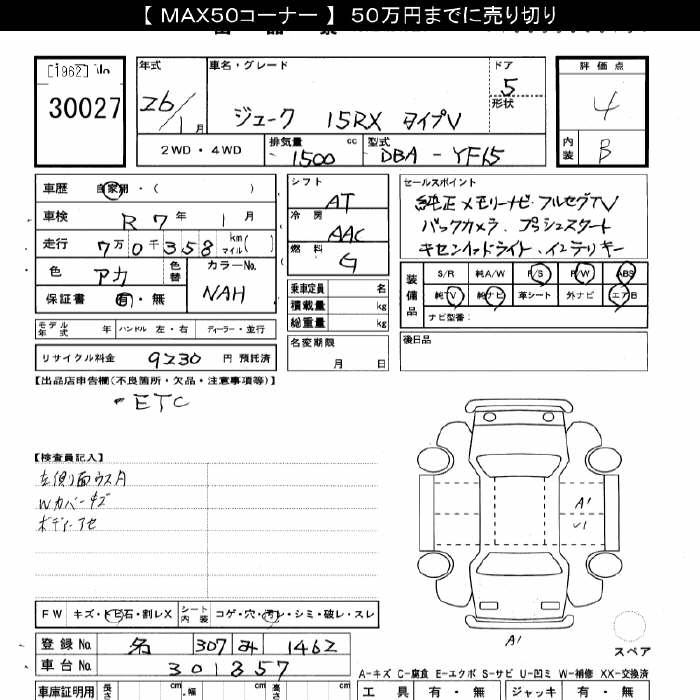 【 MAX50コーナー 】 50万円までに売り切り
[1962] No
30027
年式
26/1月
車名・グレード
ジューク 15RX タイプV
ドア
5
形状
評価点
4
内装
B
2WD・4WD
排気量
1500 cc
型式
DBA - YF15
車歴 自家用・( )
車検 R 7年 1月
走行 7万0千358 km マイル( )
色 アカ
色替
カラーNo.
NAH
保証書 有・無
シフト
AT
冷房
AAC
燃料
G
乗車定員 名
積載量 kg
総重量 kg
セールスポイント
純正メモリーナビ フルセグTV
バックカメラ、プッシュスタート
キセノンヘッドライト、インテリキー
装備品
S/R 純A/W P/S P/W ABS
純TV 純ナビ 革シート 外ナビ エアB
ナビ型番:
モデル年式 年 ハンドル 左・右 ディーラー・並行
名変期限
月 日
後日品
リサイクル料金 9230 円 預託済
【出品店申告欄(不良箇所・欠品・注意事項等)】
・ETC
【検査員記入】
左側面ウスA
Wカバーキズ
ボディーアセ
A1
A1
FW キズ・トビ石・割レX シート内装 コゲ・穴・汚レ・シミ・破レ・スレ
スペア
登録No. 名 307 み 1462
車台No. 301357
A-キズ C-腐食 E-エクボ S-サビ U-凹ミ W-補修 XX-交換済
車庫証明用 長さ cm 幅 cm cm
工具 有・無 ジャッキ 有・無